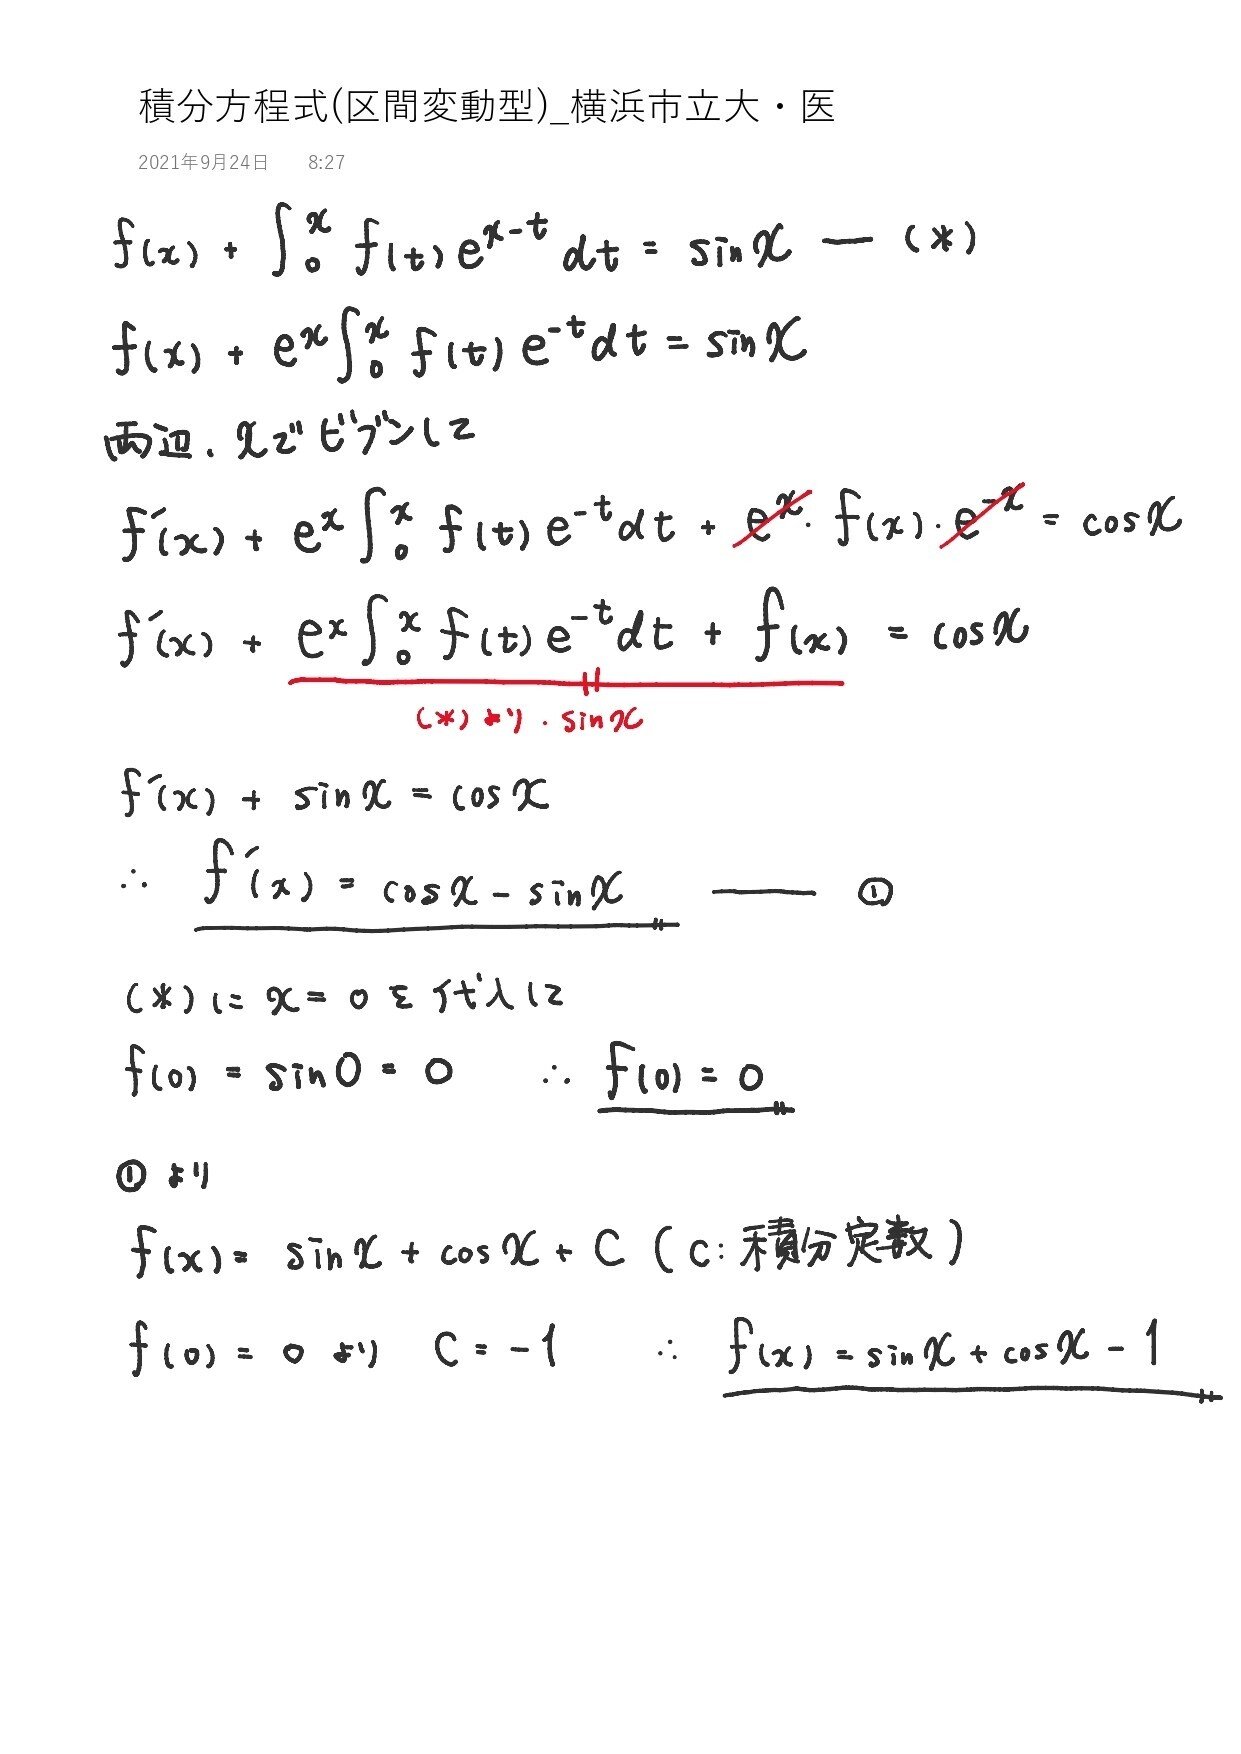 積分方程式(区間変動型)_横浜市立大・医
2021年9月24日 8:27
f(x) + ∫₀ˣ f(t) e^{x-t} dt = sinx ― (*)
f(x) + eˣ∫₀ˣ f(t) e^{-t} dt = sinx
両辺、xでビブンして
f´(x) + eˣ∫₀ˣ f(t) e^{-t} dt + eˣ・f(x)・e^{-x} = cosx
f´(x) + eˣ∫₀ˣ f(t) e^{-t} dt + f(x) = cosx
(*)より、sinx
f´(x) + sinx = cosx
∴ f´(x) = cosx - sinx ―― ①
(*)に x=0を代入して
f(0) = sin0 = 0 ∴ f(0) = 0
①より
f(x) = sinx + cosx + C (C:積分定数)
f(0) = 0 より C = -1 ∴ f(x) = sinx + cosx - 1